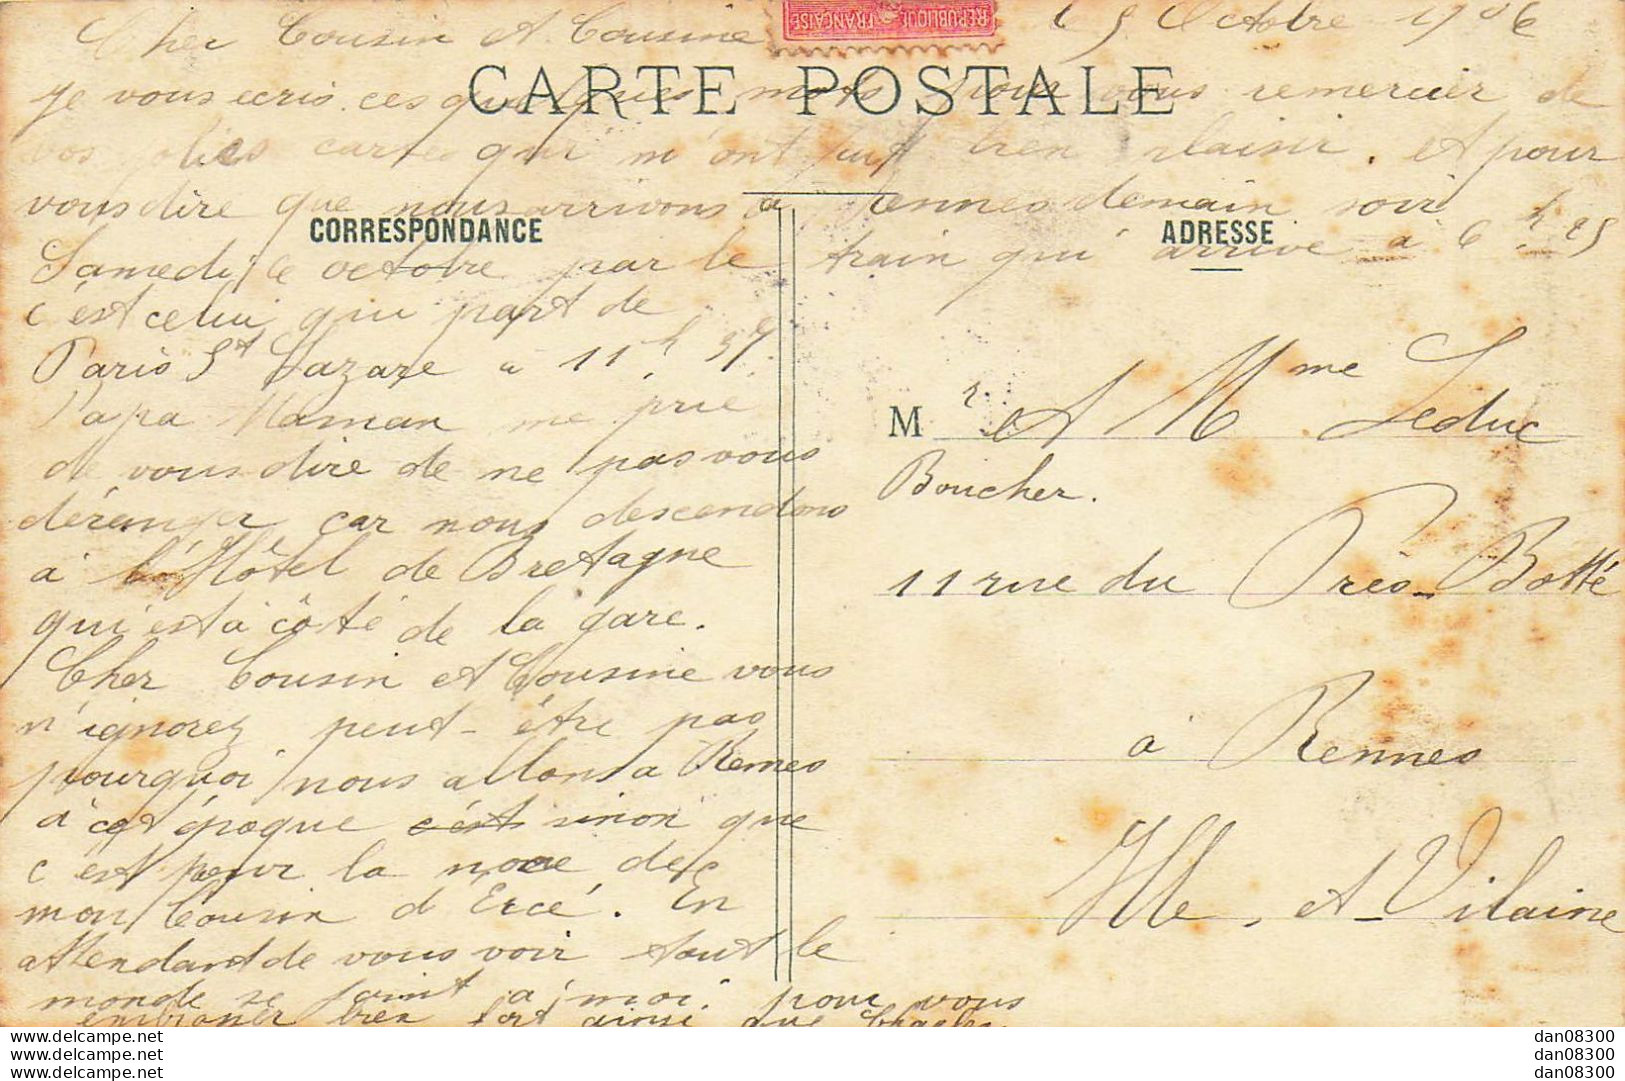 REPUBLIQUE FRANÇAISE
Cher Cousin et Cousine le 5 Octobre 1906
CARTE POSTALE
Je vous ecris ces quelques mots pour vous remercier de
vos jolies cartes qui m'ont fait bien plaisir. et pour
vous dire que nous arrivons à Rennes demain soir
CORRESPONDANCE
ADRESSE
Samedi 6 octobre par le train qui arrive à 6 h 25
c'est celui qui part de
Paris St Lazare a 11h 37
Papa Maman me prie
de vous dire de ne pas vous
déranger car nous descendons
à l'Hôtel de Bretagne
qui est à côté de la gare.
Cher Cousin et Cousine vous
n'ignorez peut-être pas
pourquoi nous allons a Rennes
à cet époque c'est sinon que
c'est pour la noce de
mon Cousin d'Ercé. En
attendant de vous voir tout le
monde se joint a moi pour vous
embrasser bien fort ainsi que Charles.
M r. et Mme Leduc
Boucher.
11 rue du Près-Botté
à Rennes
Ille-et-Vilaine
dan08300.ancre.net
dan08300.ancre.net
dan08300.ancre.net
dan08300
dan08300
dan08300